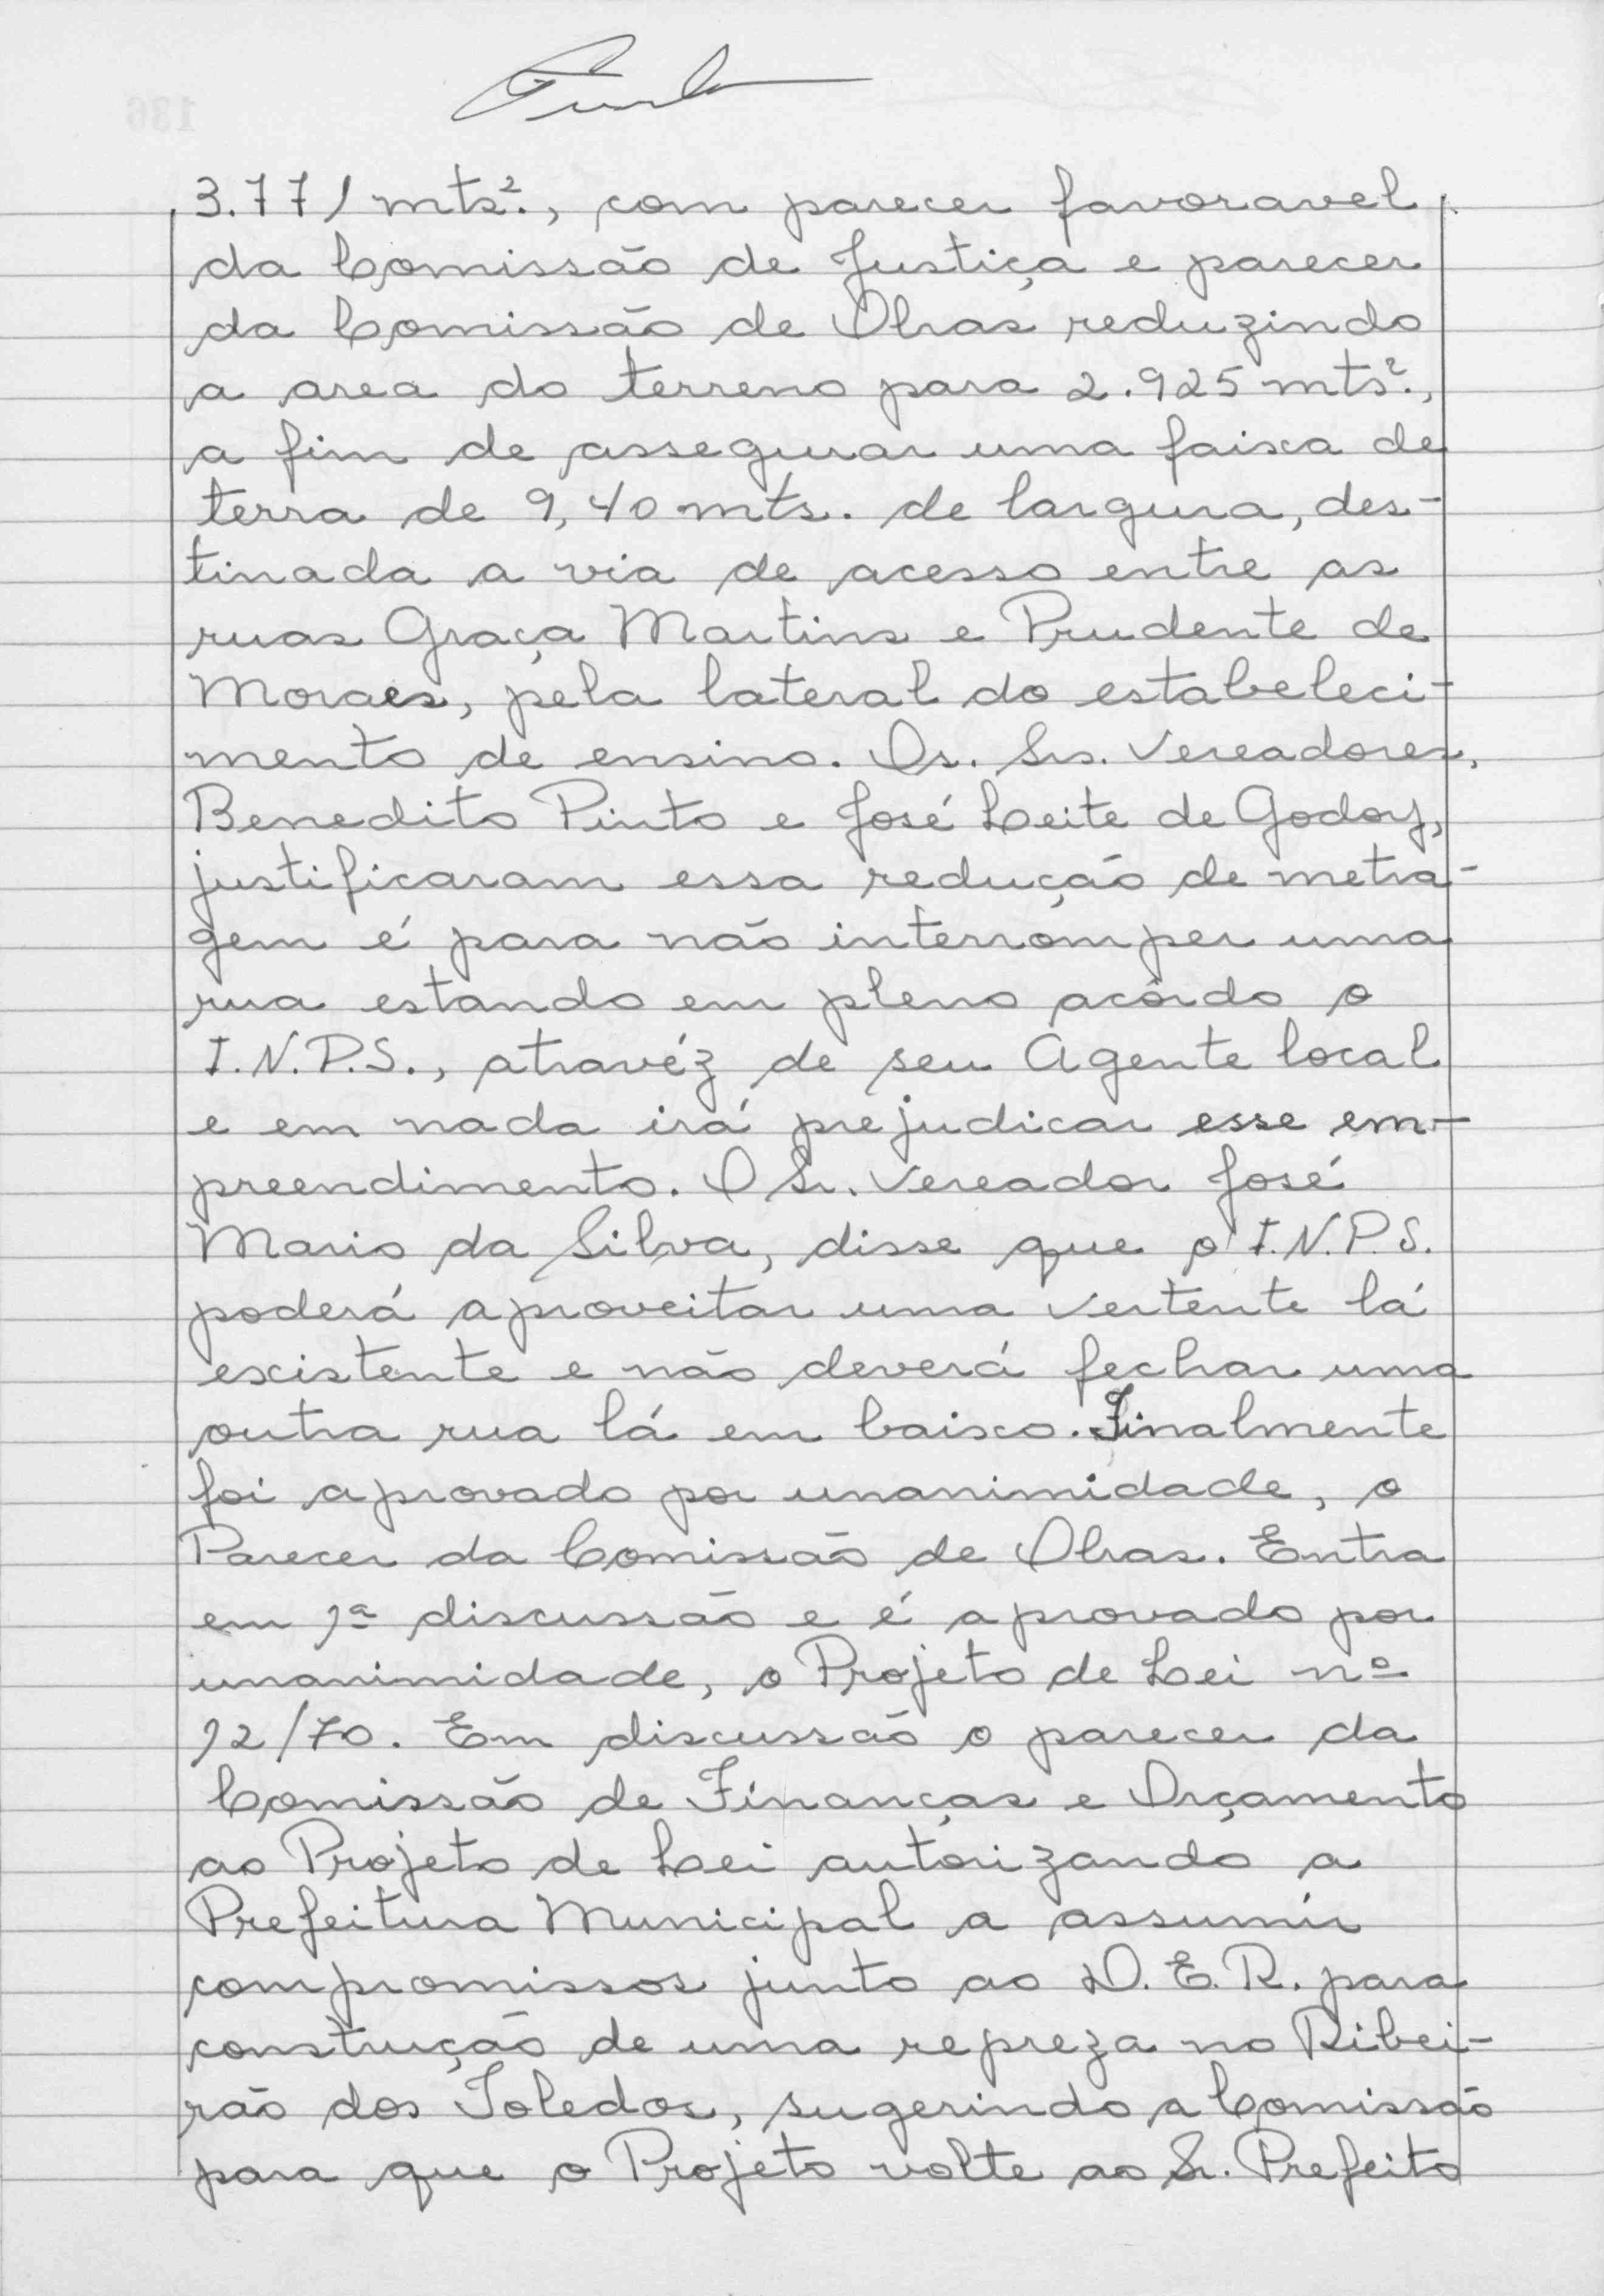 3.771 mts²., com parecer favoravel
da Comissão de Justiça e parecer
da Comissão de Obras reduzindo
a area do terreno para 2.925 mts².,
a fim de assegurar uma faixa de
terra de 9,40 mts. de largura, des-
tinada a via de acesso entre as
ruas Graça Martins e Prudente de
Moraes, pela lateral do estabeleci-
mento de ensino. Os. Srs. Vereadores,
Benedito Pinto e José Leite de Godoy,
justificaram essa redução de metra-
gem é para não interromper uma
rua estando em pleno acôrdo o
I.N.P.S., atravéz de seu Agente local
e em nada irá prejudicar esse em-
preendimento. O Sr. Vereador José
Mario da Silva, disse que o I.N.P.S.
poderá aproveitar uma vertente lá
existente e não deverá fechar uma
outra rua lá em baixo. Finalmente
foi aprovado por unanimidade, o
Parecer da Comissão de Obras. Entra
em 1ª discussão e é aprovado por
unanimidade, o Projeto de Lei nº
12/70. Em discussão o parecer da
Comissão de Finanças e Orçamento
ao Projeto de Lei autorizando a
Prefeitura Municipal a assumir
compromissos junto ao D.E.R. para
construção de uma repreza no Ribei-
rão dos Toledos, sugerindo a Comissão
para que o Projeto volte ao Sr. Prefeito